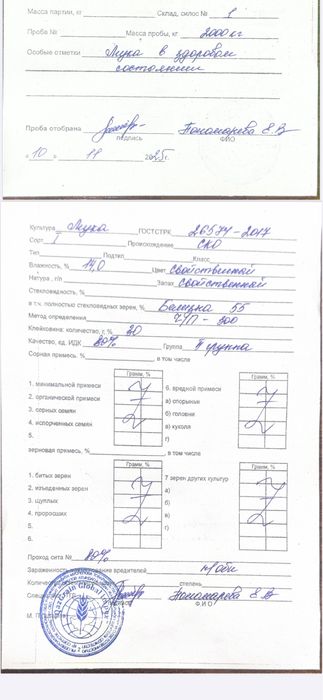 Масса партии, кг Склад, силос № 1
Проба № Масса пробы, кг 2000 кг
Особые отметки Мука в здоровом
состоянии
Проба отобрана Пономарева Е.В
подпись ФИО
« 10 » 11 2025 г.
Культура Мука ГОСТ/СТРК 26574-2017
Сорт I Происхождение СКО
Тип Подтип Класс
Влажность, % 14,0 Цвет свойственный
Натура, г/л Запах свойственный
Стекловидность, %
в т.ч. полностью стекловидных зерен, % Белизна 55
Метод определения Ч/П - 300
Клейковина: количество, г, % 30
Качество, ед. ИДК Группа II группа
Сорная примесь, % в том числе
Грамм, % Грамм, %
1. минеральной примеси 6. вредной примеси
2. органической примеси а) спорыньи
3. сорных семян б) головни
4. испорченных семян в) куколя
5. г)
зерновая примесь, % , в том числе
Грамм, % Грамм, %
1. битых зерен 7 зерен других культур
2. изъеденных зерен а)
3. щуплых б)
4. проросших в)
5. г)
6.
Проход сита №
Зараженность вредителей н/обн
Количество степень
Пономарева Е.В
Ф.И.О
М.П.